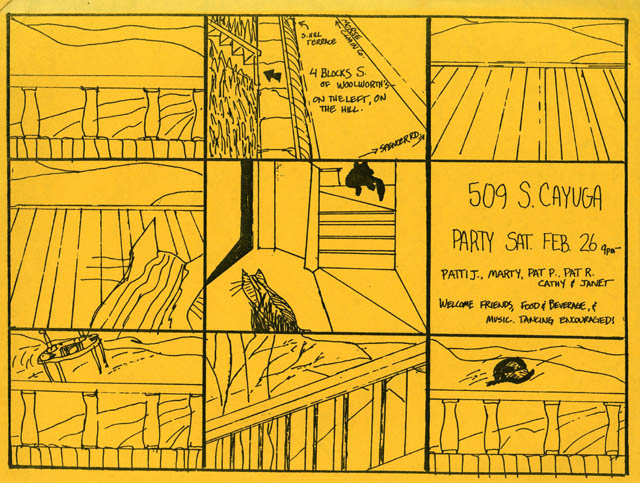 S. HILL
TERRACE
MORSE
CHAIN G.
4 BLOCKS S.
OF WOOLWORTH'S—
ON THE LEFT, ON
THE HILL.
SPENCER RD.
509 S. CAYUGA
PARTY SAT. FEB. 26 9pm–
PATTI J., MARTY, PAT P., PAT R.
CATHY & JANET
WELCOME FRIENDS, FOOD & BEVERAGE, &
MUSIC. DANCING ENCOURAGED!